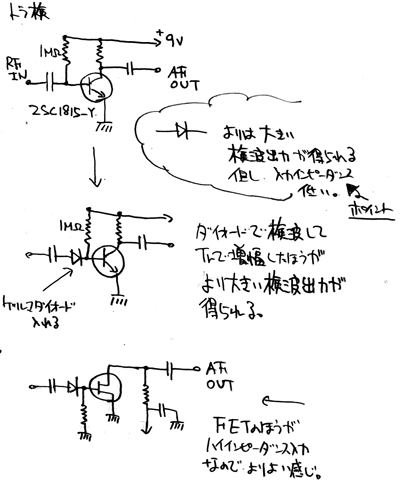 トラ検
+9V
1MΩ
RF
IN
AF
OUT
2SC1815-Y
よりは大きい
検波出力が得られる
但し 入力インピーダンス
低い。
ポイント
1MΩ
ダイオードで検波して
Trで増幅したほうが
より大きい検波出力が
得られる。
ゲルマダイオード
入れる
AF
OUT
FETのほうが
ハイインピーダンス入力
なので よりよい感じ。